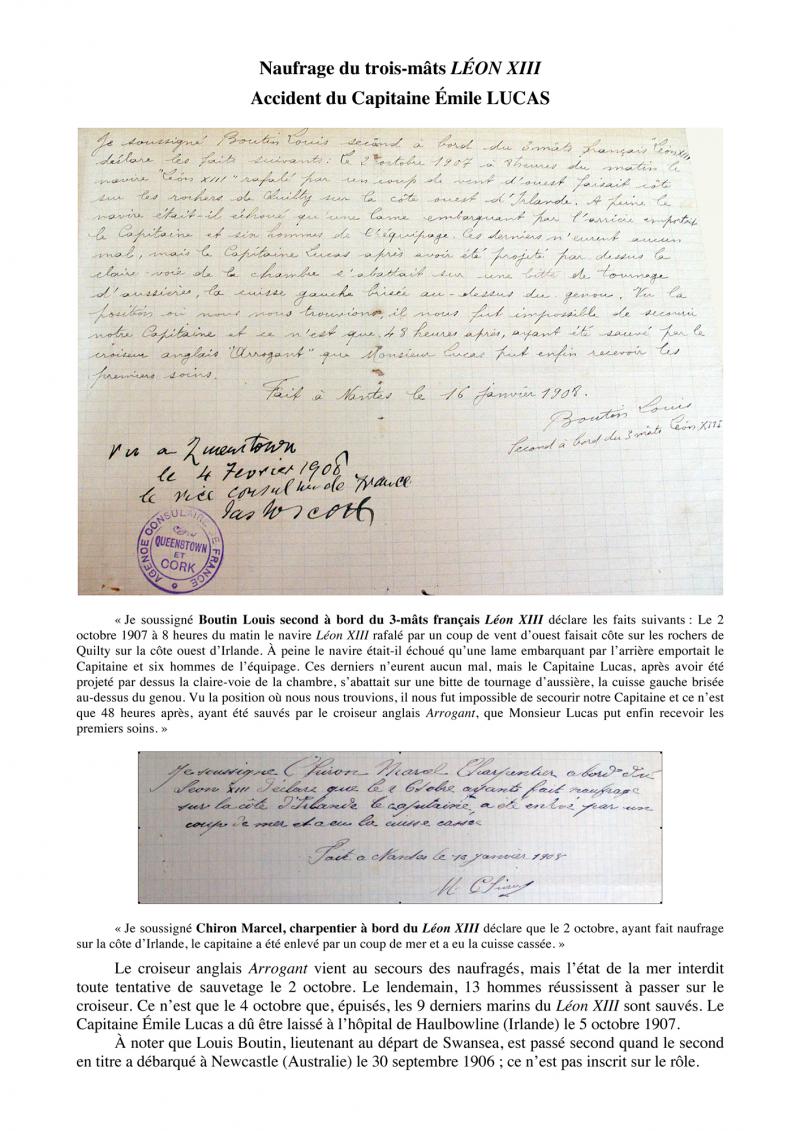 Naufrage du trois-mâts LÉON XIII
Accident du Capitaine Émile LUCAS
Je soussigné Boutin Louis second à bord du 3 mâts français "Léon XIII
déclare les faits suivants: le 2 octobre 1907 à 8 heures du matin le
navire "Léon XIII" rafalé par un coup de vent d'ouest faisait côte
sur les rochers de Quilty sur la côte ouest d'Irlande. A peine le
navire était-il échoué qu'une lame embarquant par l'arrière emportait
le Capitaine et six hommes de l'équipage. Ces derniers n'eurent aucun
mal, mais le Capitaine Lucas après avoir été projeté par dessus la
claire-voie de la chambre s'abattait sur une bitte de tournage
d'aussières, la cuisse gauche brisée au-dessus du genou. Vu la
position où nous nous trouvions, il nous fut impossible de secourir
notre Capitaine et ce n'est que 48 heures après, ayant été sauvé par le
croiseur anglais "Arrogant" que Monsieur Lucas put enfin recevoir les
premiers soins.
Fait à Nantes le 16 janvier 1908.
Boutin Louis
Second à bord du 3 mâts Léon XIII
Vu a Queenstown
le 4 Fevrier 1908
le vice consul de France
AGENCE CONSULAIRE DE FRANCE
QUEENSTOWN
ET
CORK
« Je soussigné Boutin Louis second à bord du 3-mâts français Léon XIII déclare les faits suivants : Le 2
octobre 1907 à 8 heures du matin le navire Léon XIII rafalé par un coup de vent d'ouest faisait côte sur les rochers de
Quilty sur la côte ouest d'Irlande. À peine le navire était-il échoué qu'une lame embarquant par l'arrière emportait le
Capitaine et six hommes de l'équipage. Ces derniers n'eurent aucun mal, mais le Capitaine Lucas, après avoir été
projeté par dessus la claire-voie de la chambre, s'abattait sur une bitte de tournage d'aussière, la cuisse gauche brisée
au-dessus du genou. Vu la position où nous nous trouvions, il nous fut impossible de secourir notre Capitaine et ce n'est
que 48 heures après, ayant été sauvés par le croiseur anglais Arrogant, que Monsieur Lucas put enfin recevoir les
premiers soins. »
Je soussigné Chiron Marcel Charpentier a bord du
Leon XIII déclare que le 2 octobre ayants fait naufrage
sur la côte d'Irlande le capitaine a été enlevé par un
coup de mer et a eu la cuisse cassée
Fait a Nantes le 13 janvier 1908
M Chiron
« Je soussigné Chiron Marcel, charpentier à bord du Léon XIII déclare que le 2 octobre, ayant fait naufrage
sur la côte d'Irlande, le capitaine a été enlevé par un coup de mer et a eu la cuisse cassée. »
Le croiseur anglais Arrogant vient au secours des naufragés, mais l'état de la mer interdit
toute tentative de sauvetage le 2 octobre. Le lendemain, 13 hommes réussissent à passer sur le
croiseur. Ce n'est que le 4 octobre que, épuisés, les 9 derniers marins du Léon XIII sont sauvés. Le
Capitaine Émile Lucas a dû être laissé à l'hôpital de Haulbowline (Irlande) le 5 octobre 1907.
À noter que Louis Boutin, lieutenant au départ de Swansea, est passé second quand le second
en titre a débarqué à Newcastle (Australie) le 30 septembre 1906 ; ce n'est pas inscrit sur le rôle.